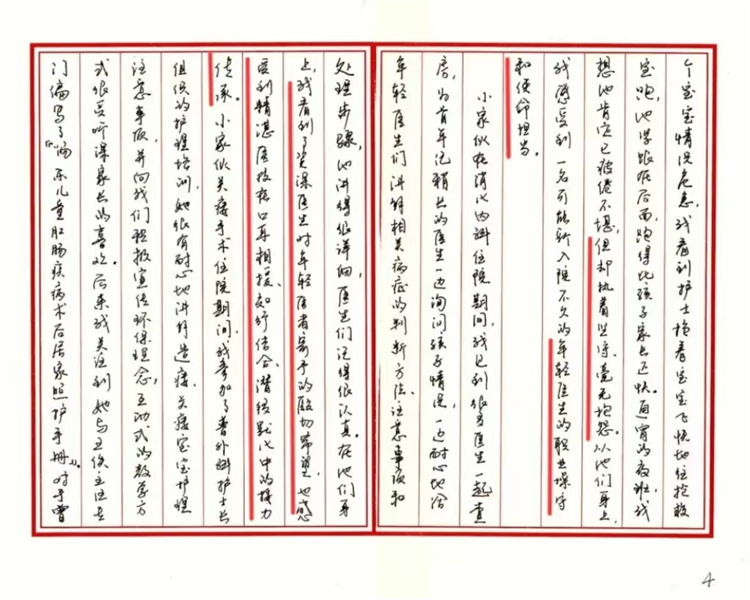 个宝宝情况危急,我看到护士抱着宝宝飞快地往抢救
室跑,他学跟在后面,跑得比孩子家长还快。通宵的夜班,我
想他肯定已疲倦不堪,但却执着坚守、毫无抱怨。从他们身上,
我感受到一名可能新入院不久的年轻医生的职业操守
和使命担当。
小家伙在消化内科住院期间,我见到很多医生一起查
房,为首年纪稍长的医生一边询问孩子情况,一边耐心地给
年轻医生们讲解相关病症的判断方法、注意事项和
处理步骤,他讲得很详细,医生们记得很认真。在他们身
上,我看到了资深医生对年轻医者寄予的殷切希望,也感
受到精湛医技在口耳相授、知行结合、潜移默化中的接力
传承。小家伙关瘘手术住院期间,我参加了普外科护士长
组织的护理培训,她很有耐心地讲解造瘘、关瘘宝宝护理
注意事项,并向我们积极宣传环保理念,互动式的教学方
式很受听课家长的喜欢。后来我关注到她与王俊主任专
门编写了《山东儿童肛肠疾病术后居家照护手册》。对于曾
4